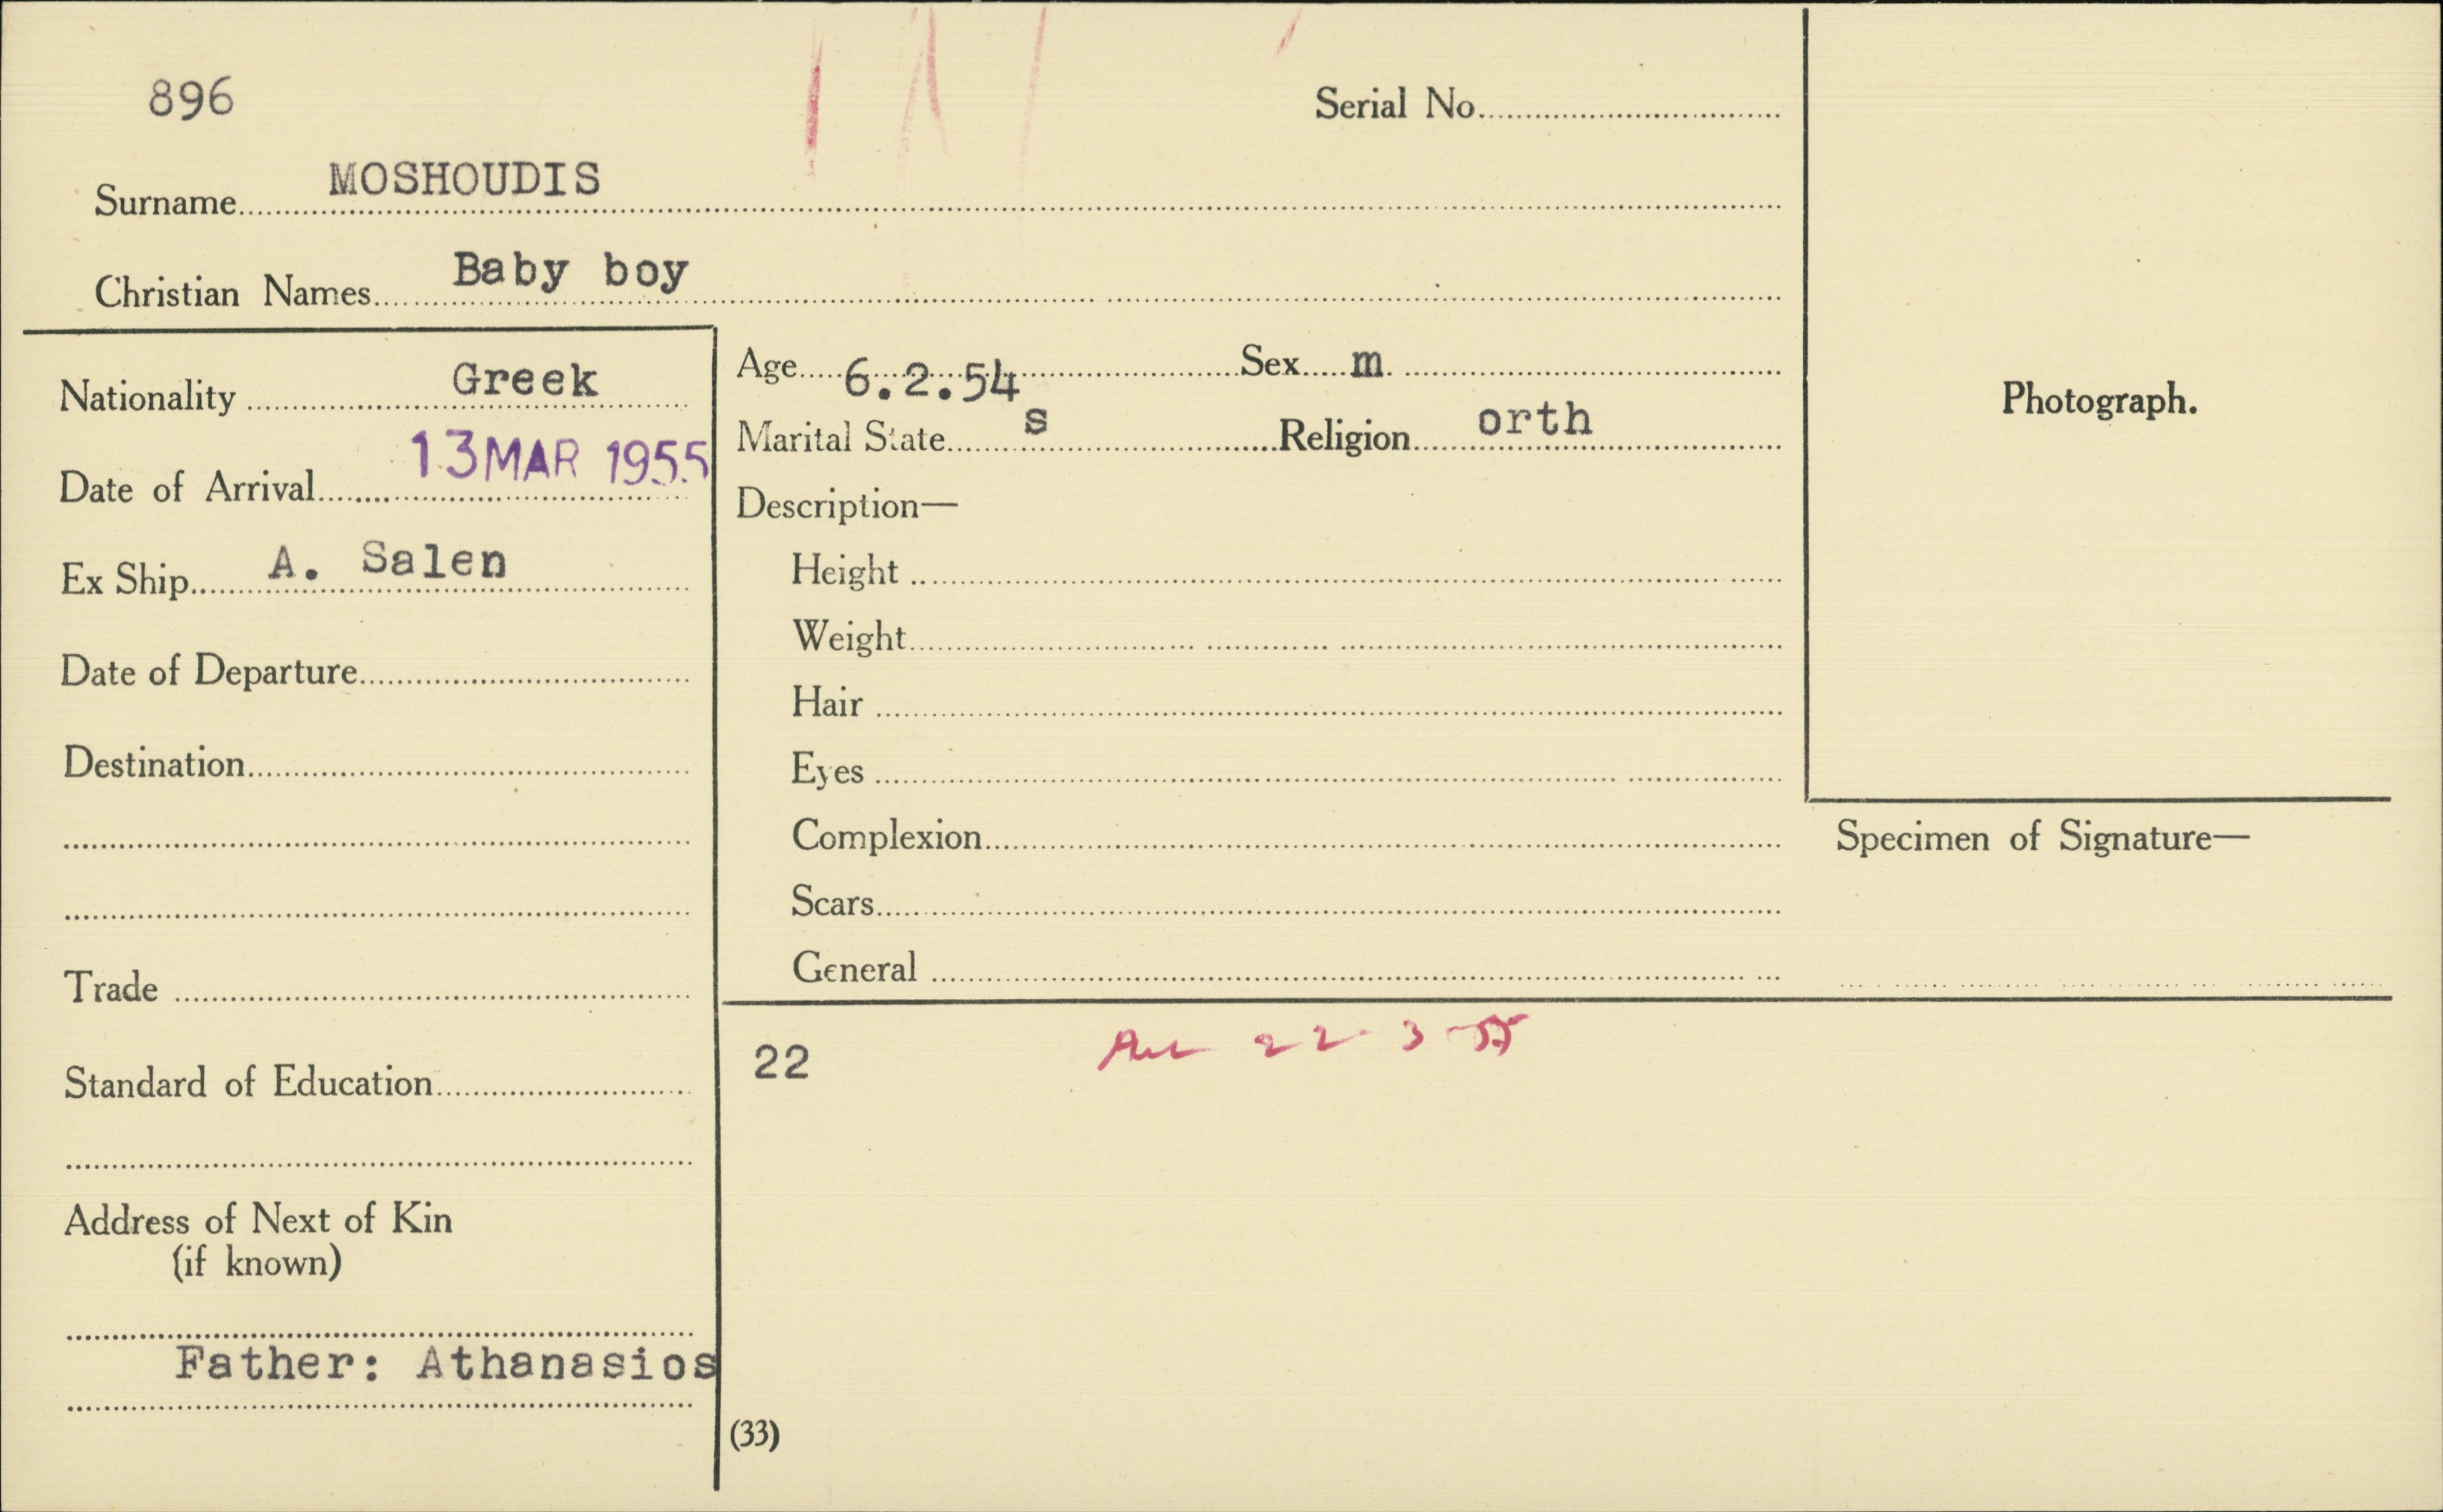 896
Serial No.
Surname MOSHOUDIS
Christian Names Baby boy
Nationality Greek
Date of Arrival 13 MAR 1955
Ex Ship A. Salen
Date of Departure
Destination
Trade
Standard of Education
Address of Next of Kin
(if known)
Father: Athanasios
Age 6.2.54 Sex m
Marital State s Religion orth
Description—
Height
Weight
Hair
Eyes
Complexion
Scars
General
22
22 3 55
(33)
Photograph.
Specimen of Signature—